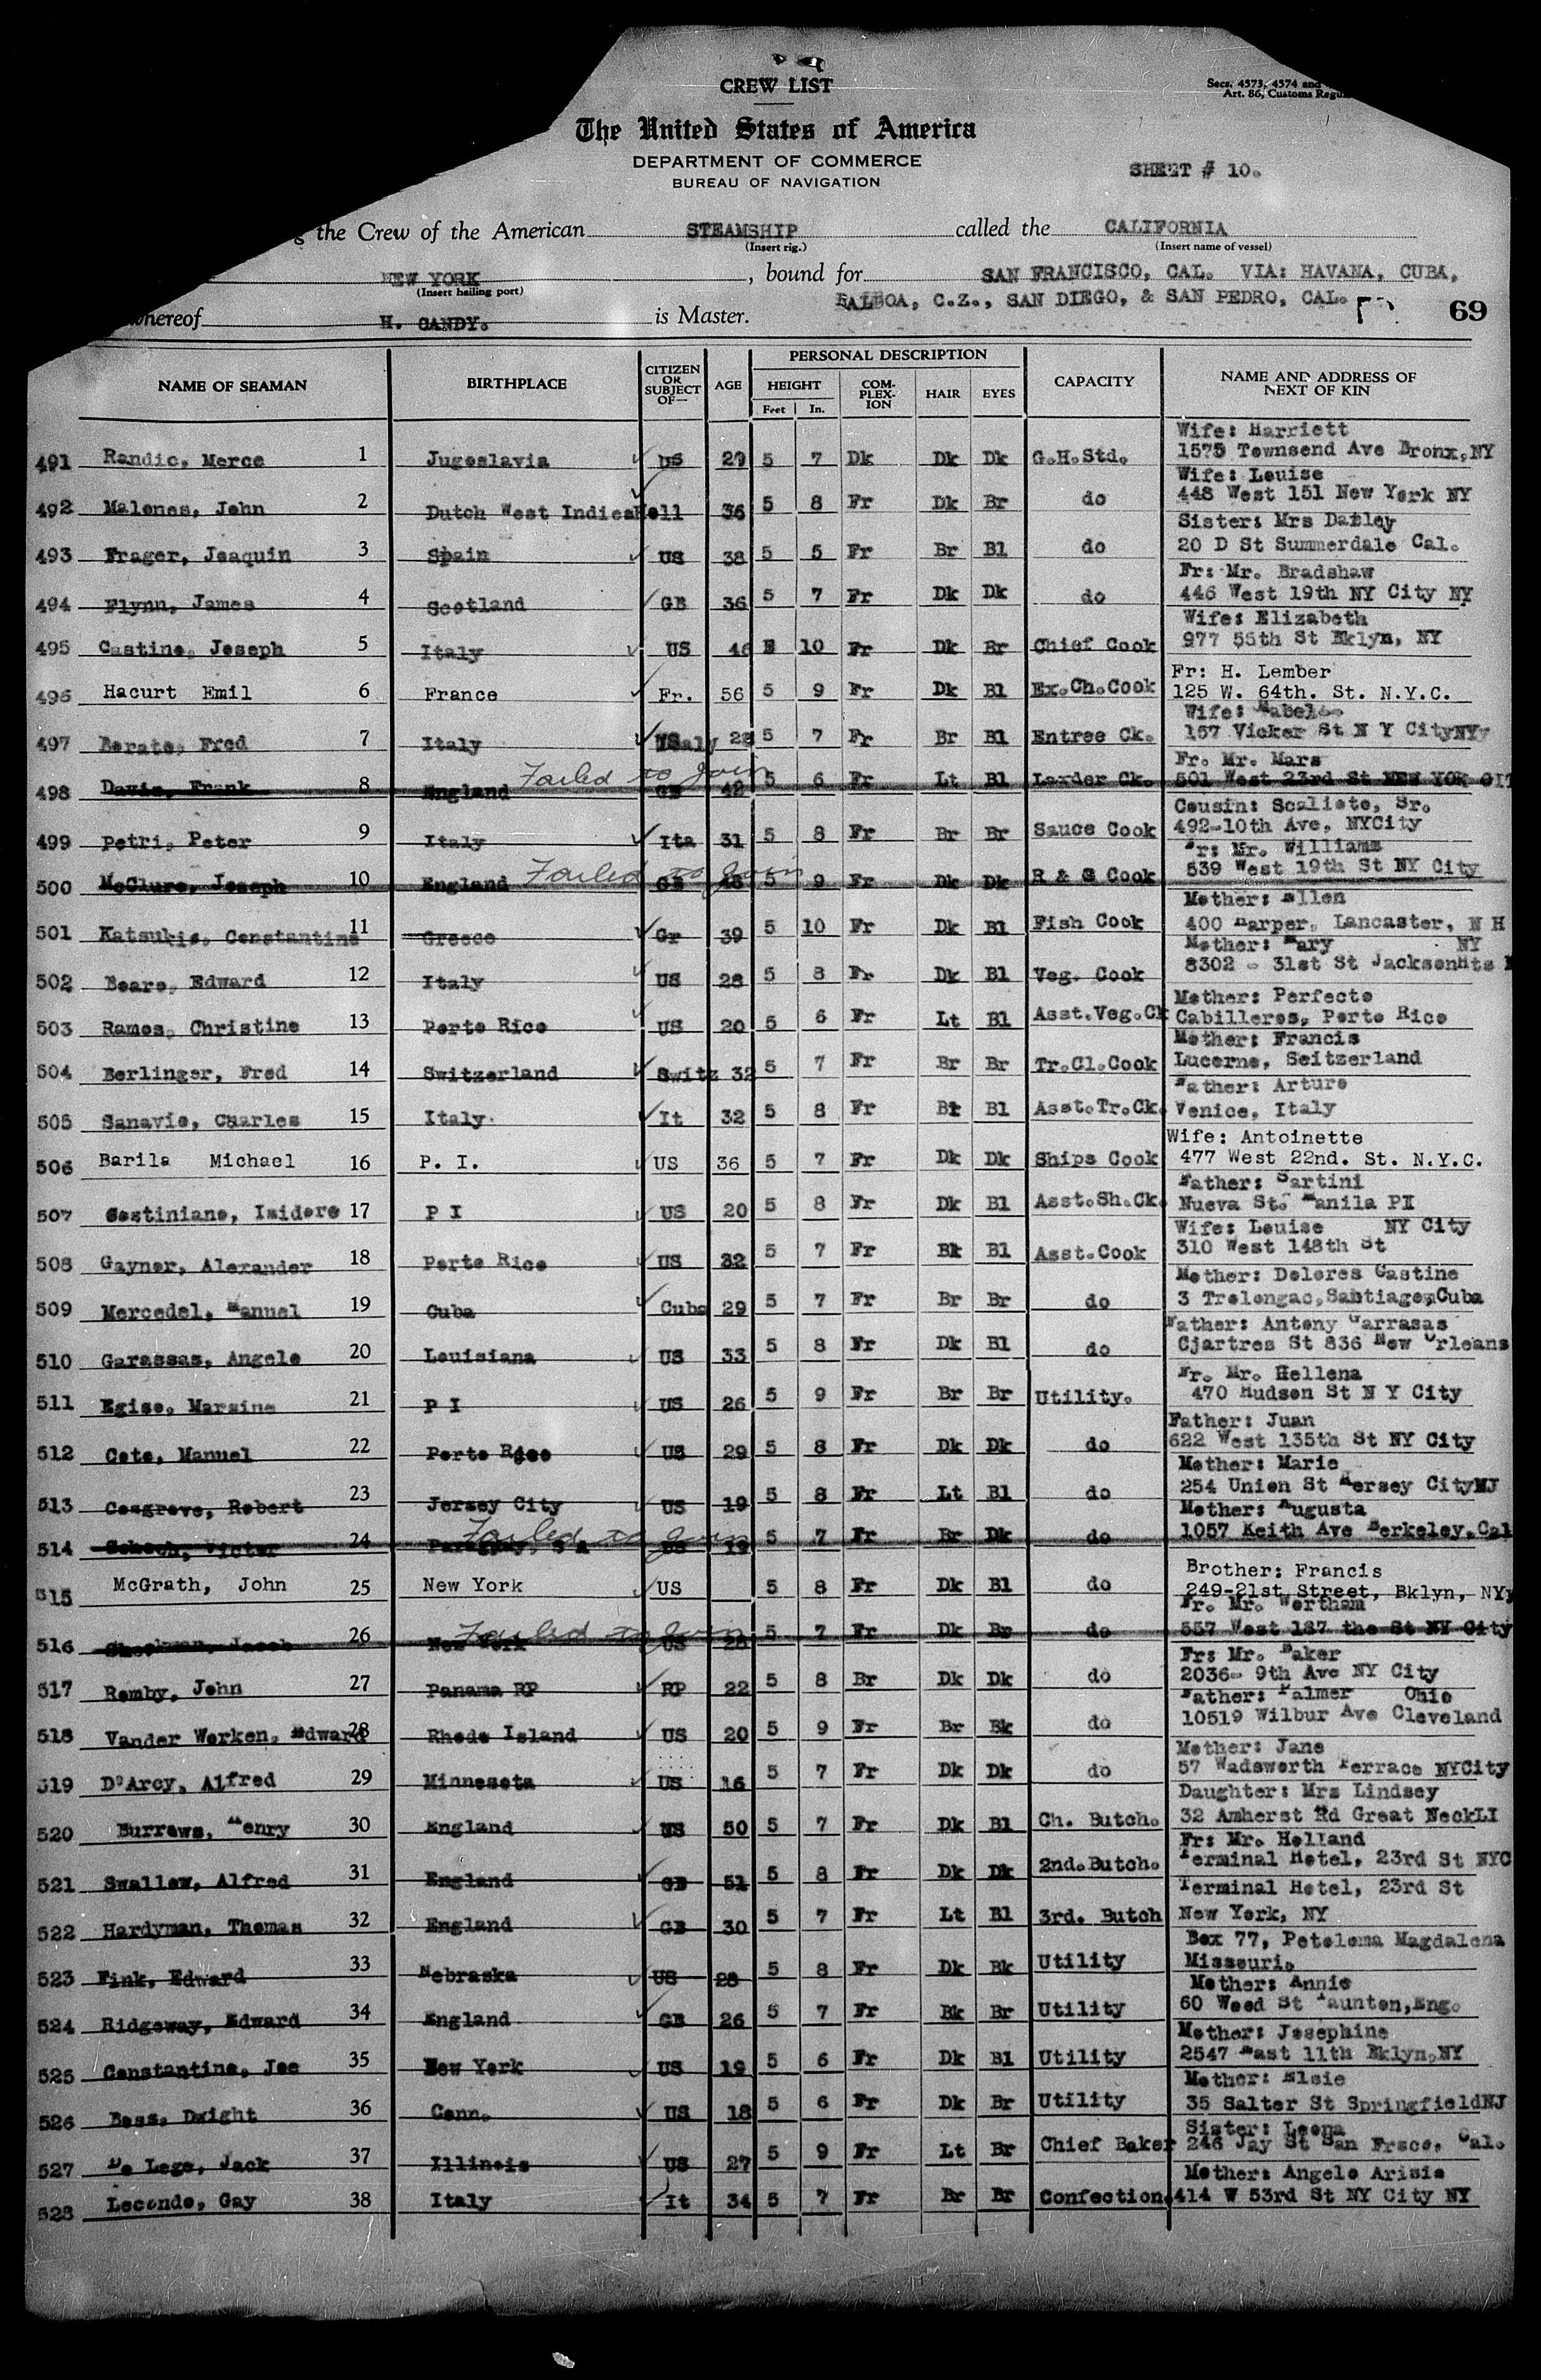 CREW LIST
Secs. 4573, 4574 and
Art. 86, Customs Regu
The United States of America
DEPARTMENT OF COMMERCE
BUREAU OF NAVIGATION
SHEET # 10.
the Crew of the American STEAMSHIP called the CALIFORNIA
(Insert rig.) (Insert name of vessel)
NEW YORK , bound for SAN FRANCISCO, CAL. VIA: HAVANA, CUBA,
(Insert hailing port)
BALBOA, C.Z., SAN DIEGO, & SAN PEDRO, CAL.
whereof H. GANDY. is Master. 69
NAME OF SEAMAN BIRTHPLACE CITIZEN OR SUBJECT OF— AGE PERSONAL DESCRIPTION CAPACITY NAME AND ADDRESS OF NEXT OF KIN
HEIGHT COM-PLEX-ION HAIR EYES
Feet In.
Wife: Harriett
491 Randic, Merce 1 Jugoslavia US 29 5 7 Dk Dk Dk G.H.Std. 1575 Townsend Ave Bronx,NY
Wife: Louise
492 Malones, John 2 Dutch West Indies Holl 36 5 8 Fr Dk Br do 448 West 151 New York NY
Sister: Mrs Dailey
493 Frager, Joaquin 3 Spain US 38 5 5 Fr Br Bl do 20 D St Summerdale Cal.
Fr: Mr. Bradshaw
494 Flynn, James 4 Scotland GB 36 5 7 Fr Dk Dk do 446 West 19th NY City NY
Wife: Elizabeth
495 Castino, Joseph 5 Italy US 46 5 10 Fr Dk Br Chief Cook 977 55th St Bklyn, NY
Fr: H. Lember
496 Hacurt Emil 6 France Fr. 56 5 9 Fr Dk Bl Ex.Ch.Cook 125 W. 64th. St. N.Y.C.
Wife: Mabel
497 Berate, Fred 7 Italy 28 5 7 Fr Br Bl Entree Ck. 157 Vicker St N Y CityNY
Failed to join
Fr. Mr. Mars
498 Davis, Frank 8 England GB 42 5 6 Fr Lt Bl Larder Ck. 501 West 23rd St NEW YOR CIT
Cousin: Scaliete, Sr.
499 Petri, Peter 9 Italy Ita 31 5 8 Fr Br Br Sauce Cook 492-10th Ave, NYCity
Failed to join
Fr: Mr. Williams
500 McClure, Joseph 10 England GB 48 5 9 Fr Dk Dk R & G Cook 539 West 19th St NY City
Mother: Ellen
501 Katsukis, Constantine 11 Greece Gr 39 5 10 Fr Dk Bl Fish Cook 400 Harper, Lancaster, N H
Mother: Mary NY
502 Beare, Edward 12 Italy US 28 5 8 Fr Dk Bl Veg. Cook 8302 - 31st St JacksonHts
Mother: Perfecto
503 Rames, Christine 13 Porto Rico US 20 5 6 Fr Lt Bl Asst.Veg.Ck Cabilleros, Porto Rico
Mother: Francis
504 Berlinger, Fred 14 Switzerland Switz 32 5 7 Fr Br Br Tr.Cl.Cook Lucerne, Seitzerland
Father: Arture
505 Sanavie, Charles 15 Italy. It 32 5 8 Fr Bl Asst.Tr.Ck. Venice, Italy
Wife: Antoinette
506 Barila Michael 16 P. I. US 36 5 7 Fr Dk Dk Ships Cook 477 West 22nd. St. N.Y.C.
Father: Sartini
507 Gostiniano, Isidore 17 P I US 20 5 8 Fr Dk Bl Asst.Sh.Ck. Nueva St. Manila PI
Wife: Louise NY City
508 Gayner, Alexander 18 Porto Rico US 32 5 7 Fr Bk Bl Asst.Cook 310 West 148th St
Mother: Dolores Castine
509 Mercedel, Manuel 19 Cuba Cuba 29 5 7 Fr Br Br do 3 Trelengac,Santiago,Cuba
Father: Antony Garrasas
510 Garassas, Angelo 20 Louisiana US 33 5 8 Fr Dk Bl do Cjartres St 836 New Orleans
Fr. Mr. Hellena
511 Egiso, Marsine 21 P I US 26 5 9 Fr Br Br Utility. 470 Hudson St N Y City
Father: Juan
512 Coto, Manuel 22 Porto Rico US 29 5 8 Fr Dk Dk do 622 West 135th St NY City
Mother: Marie
513 Cosgrove, Robert 23 Jersey City US 19 5 8 Fr Lt Bl do 254 Union St Jersey CityNJ
Failed to join
Mother: Augusta
514 Victor 24 Paraguay, S A US 19 5 7 Fr Br Dk do 1057 Keith Ave Berkeley,Cal
Brother: Francis
515 McGrath, John 25 New York US 5 8 Fr Dk Bl do 249-21st Street, Bklyn, NY
Failed to join
Fr. Mr. Wertham
516 Jacob 26 New York US 28 5 7 Fr Dk Br do 557 West 187 the St NY City
Fr: Mr. Baker
517 Romby, John 27 Panama RP RP 22 5 8 Br Dk Dk do 2036- 9th Ave NY City
Father: Palmer Ohio
518 Vander Werken, Edward 28 Rhode Island US 20 5 9 Fr Br Bk do 10519 Wilbur Ave Cleveland
Mother: Jane
519 D'Arcy, Alfred 29 Minnesota US 16 5 7 Fr Dk Dk do 57 Wadsworth Terrace NYCity
Daughter: Mrs Lindsey
520 Burrows, Henry 30 England US 50 5 7 Fr Dk Bl Ch. Butch. 32 Amherst Rd Great NeckLI
Fr: Mr. Holland
521 Swallow, Alfred 31 England GB 51 5 8 Fr Dk Dk 2nd.Butch. Terminal Hotel, 23rd St NYC
Terminal Hotel, 23rd St
522 Hardyman, Thomas 32 England GB 30 5 7 Fr Lt Bl 3rd. Butch New York, NY
Box 77, Petolema Magdalena
523 Fink, Edward 33 Nebraska US 28 5 8 Fr Dk Bk Utility Missouri.
Mother: Annie
524 Ridgeway, Edward 34 England GB 26 5 7 Fr Bk Br Utility 60 Weed St Taunton,Eng.
Mother: Josephine
525 Constantine, Joe 35 New York US 19 5 6 Fr Dk Bl Utility 2547 East 11th Bklyn,NY
Mother: Elsie
526 Bess, Dwight 36 Conn. US 18 5 6 Fr Dk Br Utility 35 Salter St SpringfieldNJ
Sister: Leona
527 De Lego, Jack 37 Illinois US 27 5 9 Fr Lt Br Chief Baker 246 Jay St San Frsco, Cal.
Mother: Angelo Arisie
528 Leconde, Gay 38 Italy It 34 5 7 Fr Br Br Confection. 414 W 53rd St NY City NY